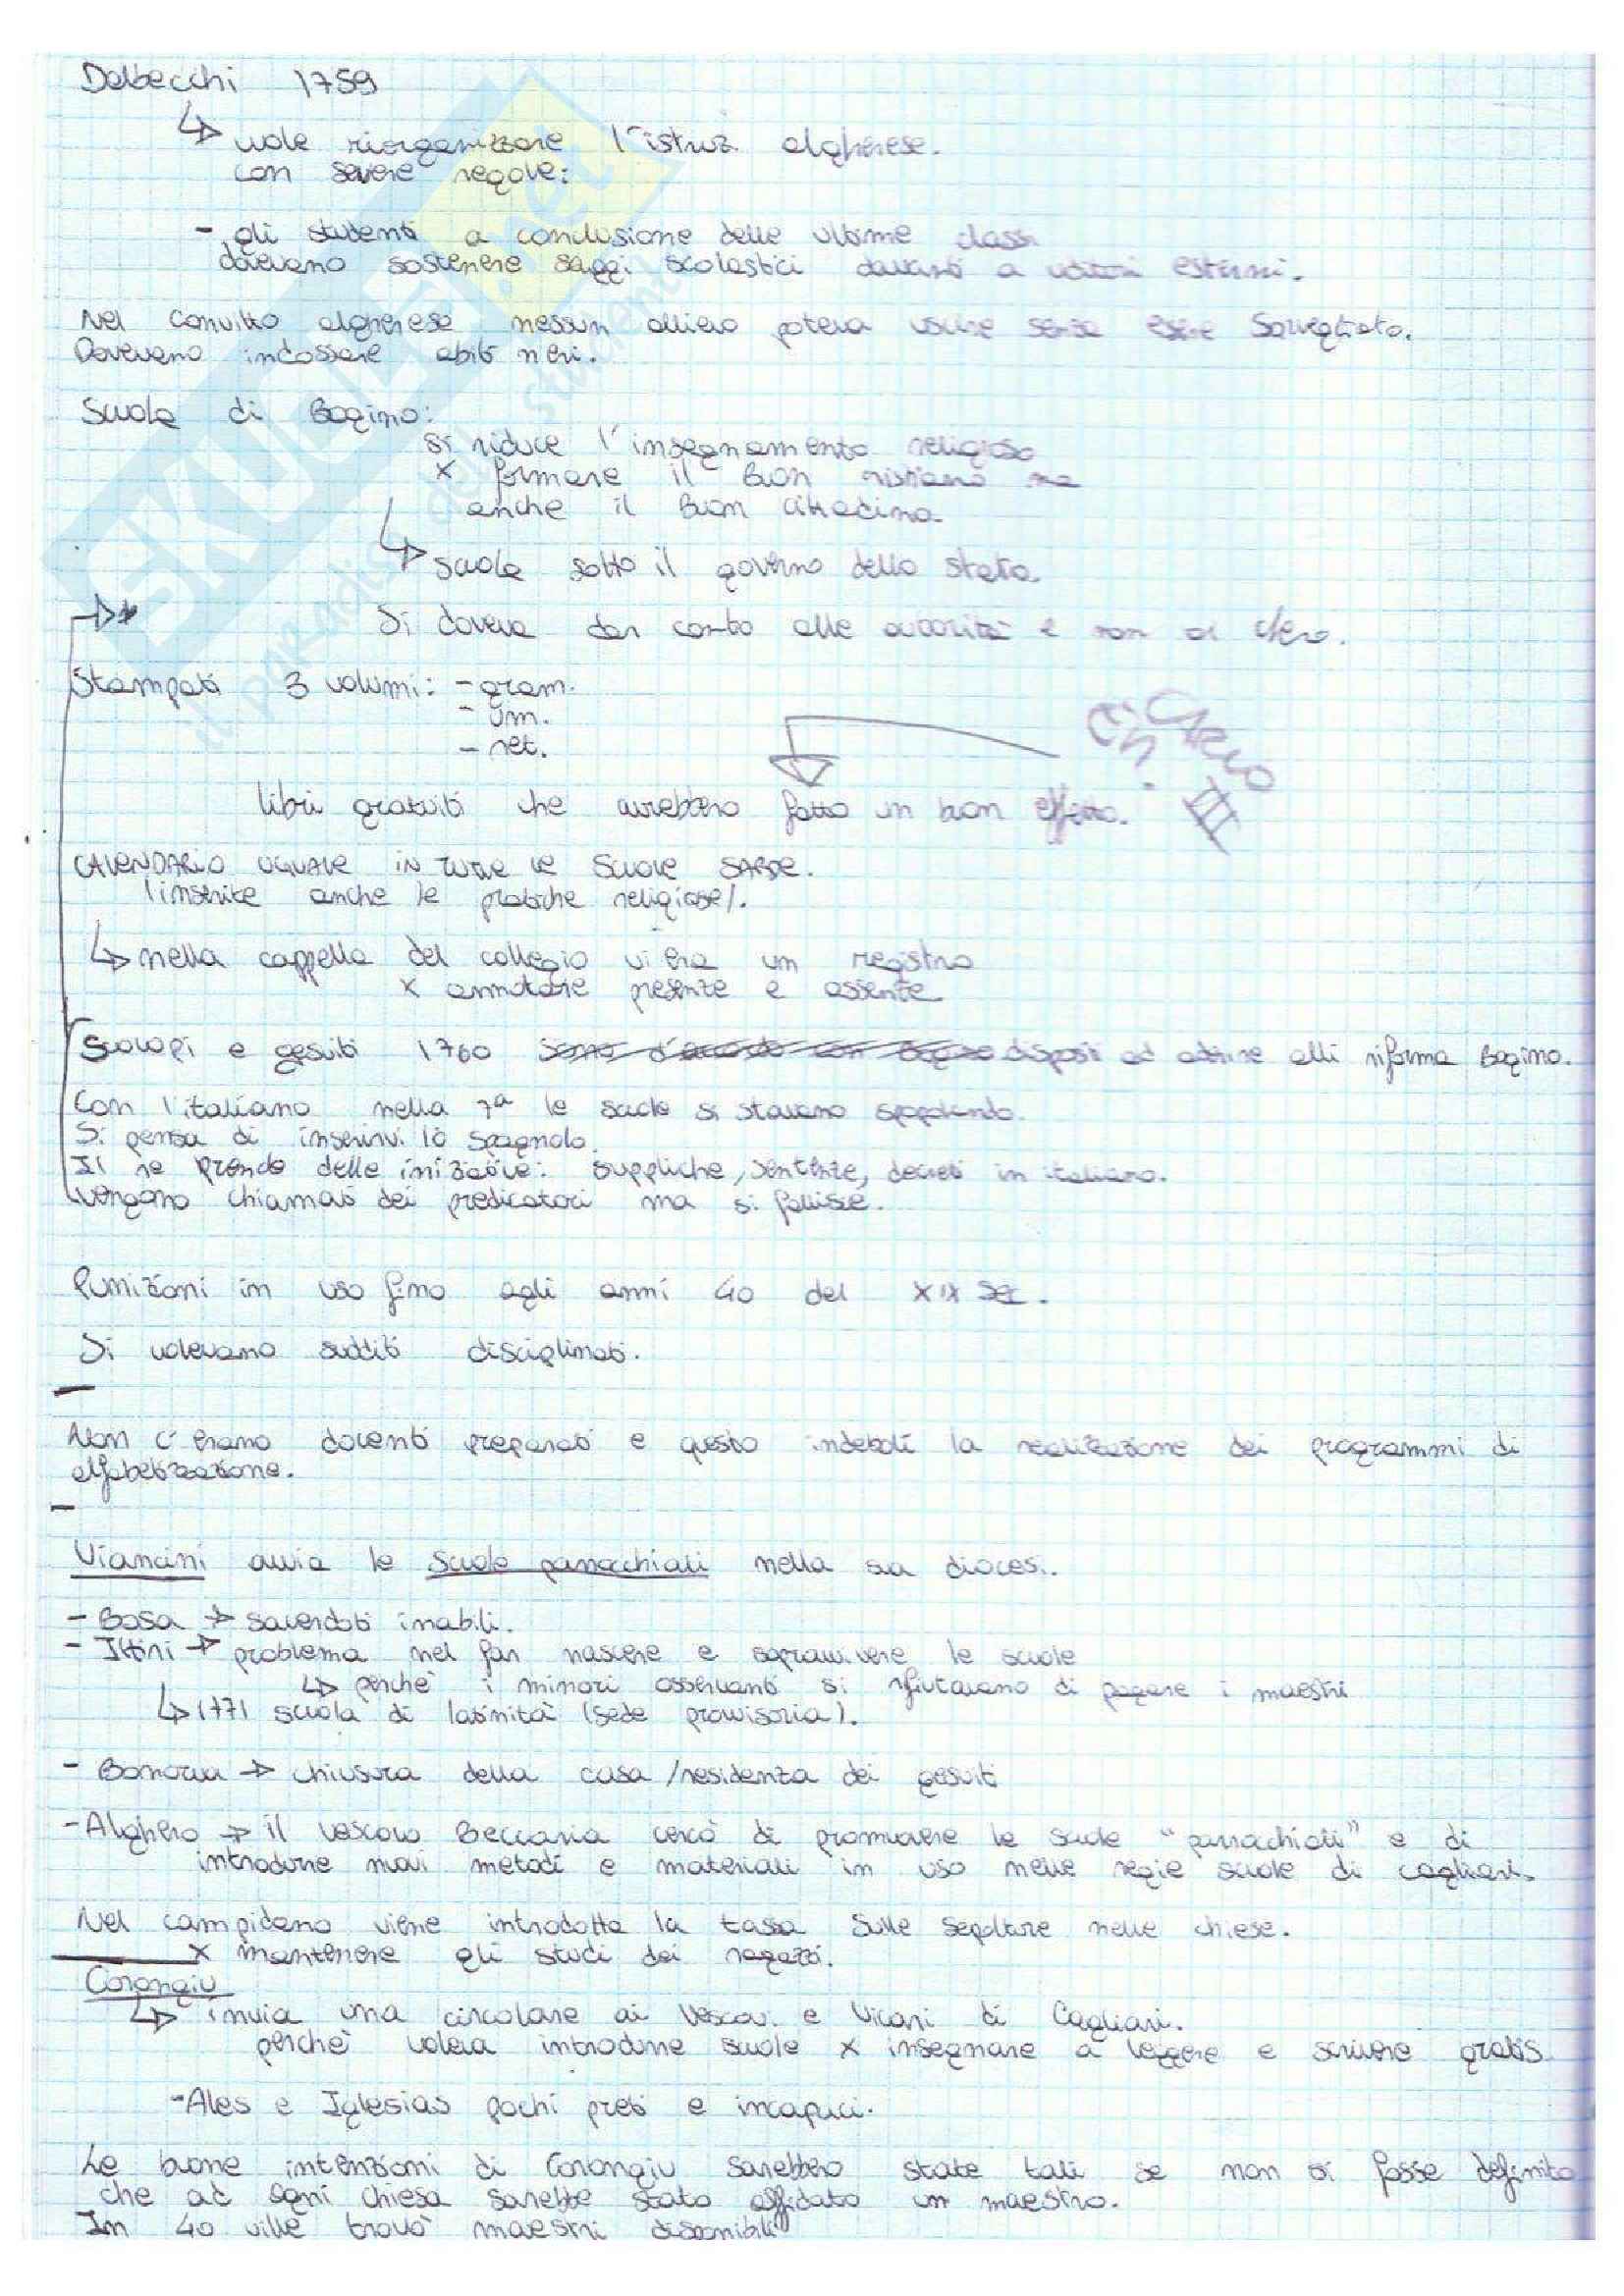 Delbecchi 1759
↳ vuole riorganizzare l'istruz. algherese.
con severe regole:
- gli studenti a conclusione delle ultime classi
dovevano sostenere saggi scolastici davanti a uditori esterni.
Nel convitto algherese nessun allievo poteva uscire senza essere sorvegliato.
Dovevano indossare abiti neri.
Scuola di Bogino:
si riduce l'insegnamento religioso
x formare il buon cristiano ma
anche il buon cittadino.
↳ scuola sotto il governo dello stato.
Si doveva dar conto alle autorità e non al clero.
Stampati 3 volumi: - gram.
- um.
- ret.
Carlo
Em.
III
libri gratuiti che avrebbero fatto un buon effetto.
CALENDARIO UGUALE IN TUTTE LE SCUOLE SARDE.
(inserite anche le pratiche religiose).
↳ nella cappella del collegio vi era un registro
x annotare presenze e assenze
Scolopi e gesuiti 1760 disposti ad aderire alla riforma Bogino.
Con l'italiano nella 7ª le scuole si stavano spopolando.
Si pensa di inserirvi lo spagnolo.
Il re prende delle iniziative: suppliche, sentenze, decreti in italiano.
Vengono chiamati dei predicatori ma si fallisce.
Punizioni in uso fino agli anni 40 del XIX sec.
Si volevano sudditi disciplinati.
Non c'erano docenti preparati e questo indebolì la realizzazione dei programmi di
alfabetizzazione.
Viancini avvia le scuole parrocchiali nella sua diocesi.
- Bosa → sacerdoti inabili.
- Ittiri → problema nel far nascere e sopravvivere le scuole
↳ perchè i minori osservanti si rifiutavano di pagare i maestri
↳ 1771 scuola di latinità (sede provvisoria).
- Bonorva → chiusura della casa/residenza dei gesuiti
- Alghero → il vescovo Beccaria cercò di promuovere le scuole "parrocchiali" e di
introdurre nuovi metodi e materiali in uso nelle regie scuole di Cagliari.
Nel campidano viene introdotta la tassa sulle sepolture nelle chiese.
x mantenere gli studi dei ragazzi.
Corongiu
↳ invia una circolare ai Vescovi e Vicari di Cagliari.
perchè voleva introdurre scuole x insegnare a leggere e scrivere gratis
- Ales e Iglesias pochi preti e incapaci.
Le buone intenzioni di Corongiu sarebbero state tali se non si fosse definito
che ad ogni chiesa sarebbe stato affidato un maestro.
In 40 ville trovò maestri disponibili
SKUOLA.net
il paradiso dello studente